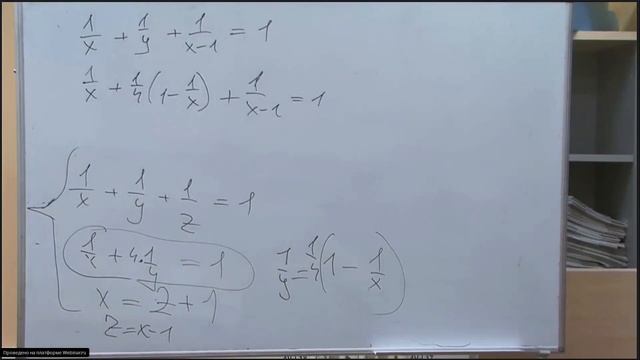 1/x + 1/y + 1/(x-1) = 1
1/x + 1/4(1 - 1/x) + 1/(x-1) = 1
1/x + 1/y + 1/z = 1
1/x + 4·1/y = 1
1/y = 1/4(1 - 1/x)
x = z + 1
z = x-1
Проведено на платформе Webinar.ru